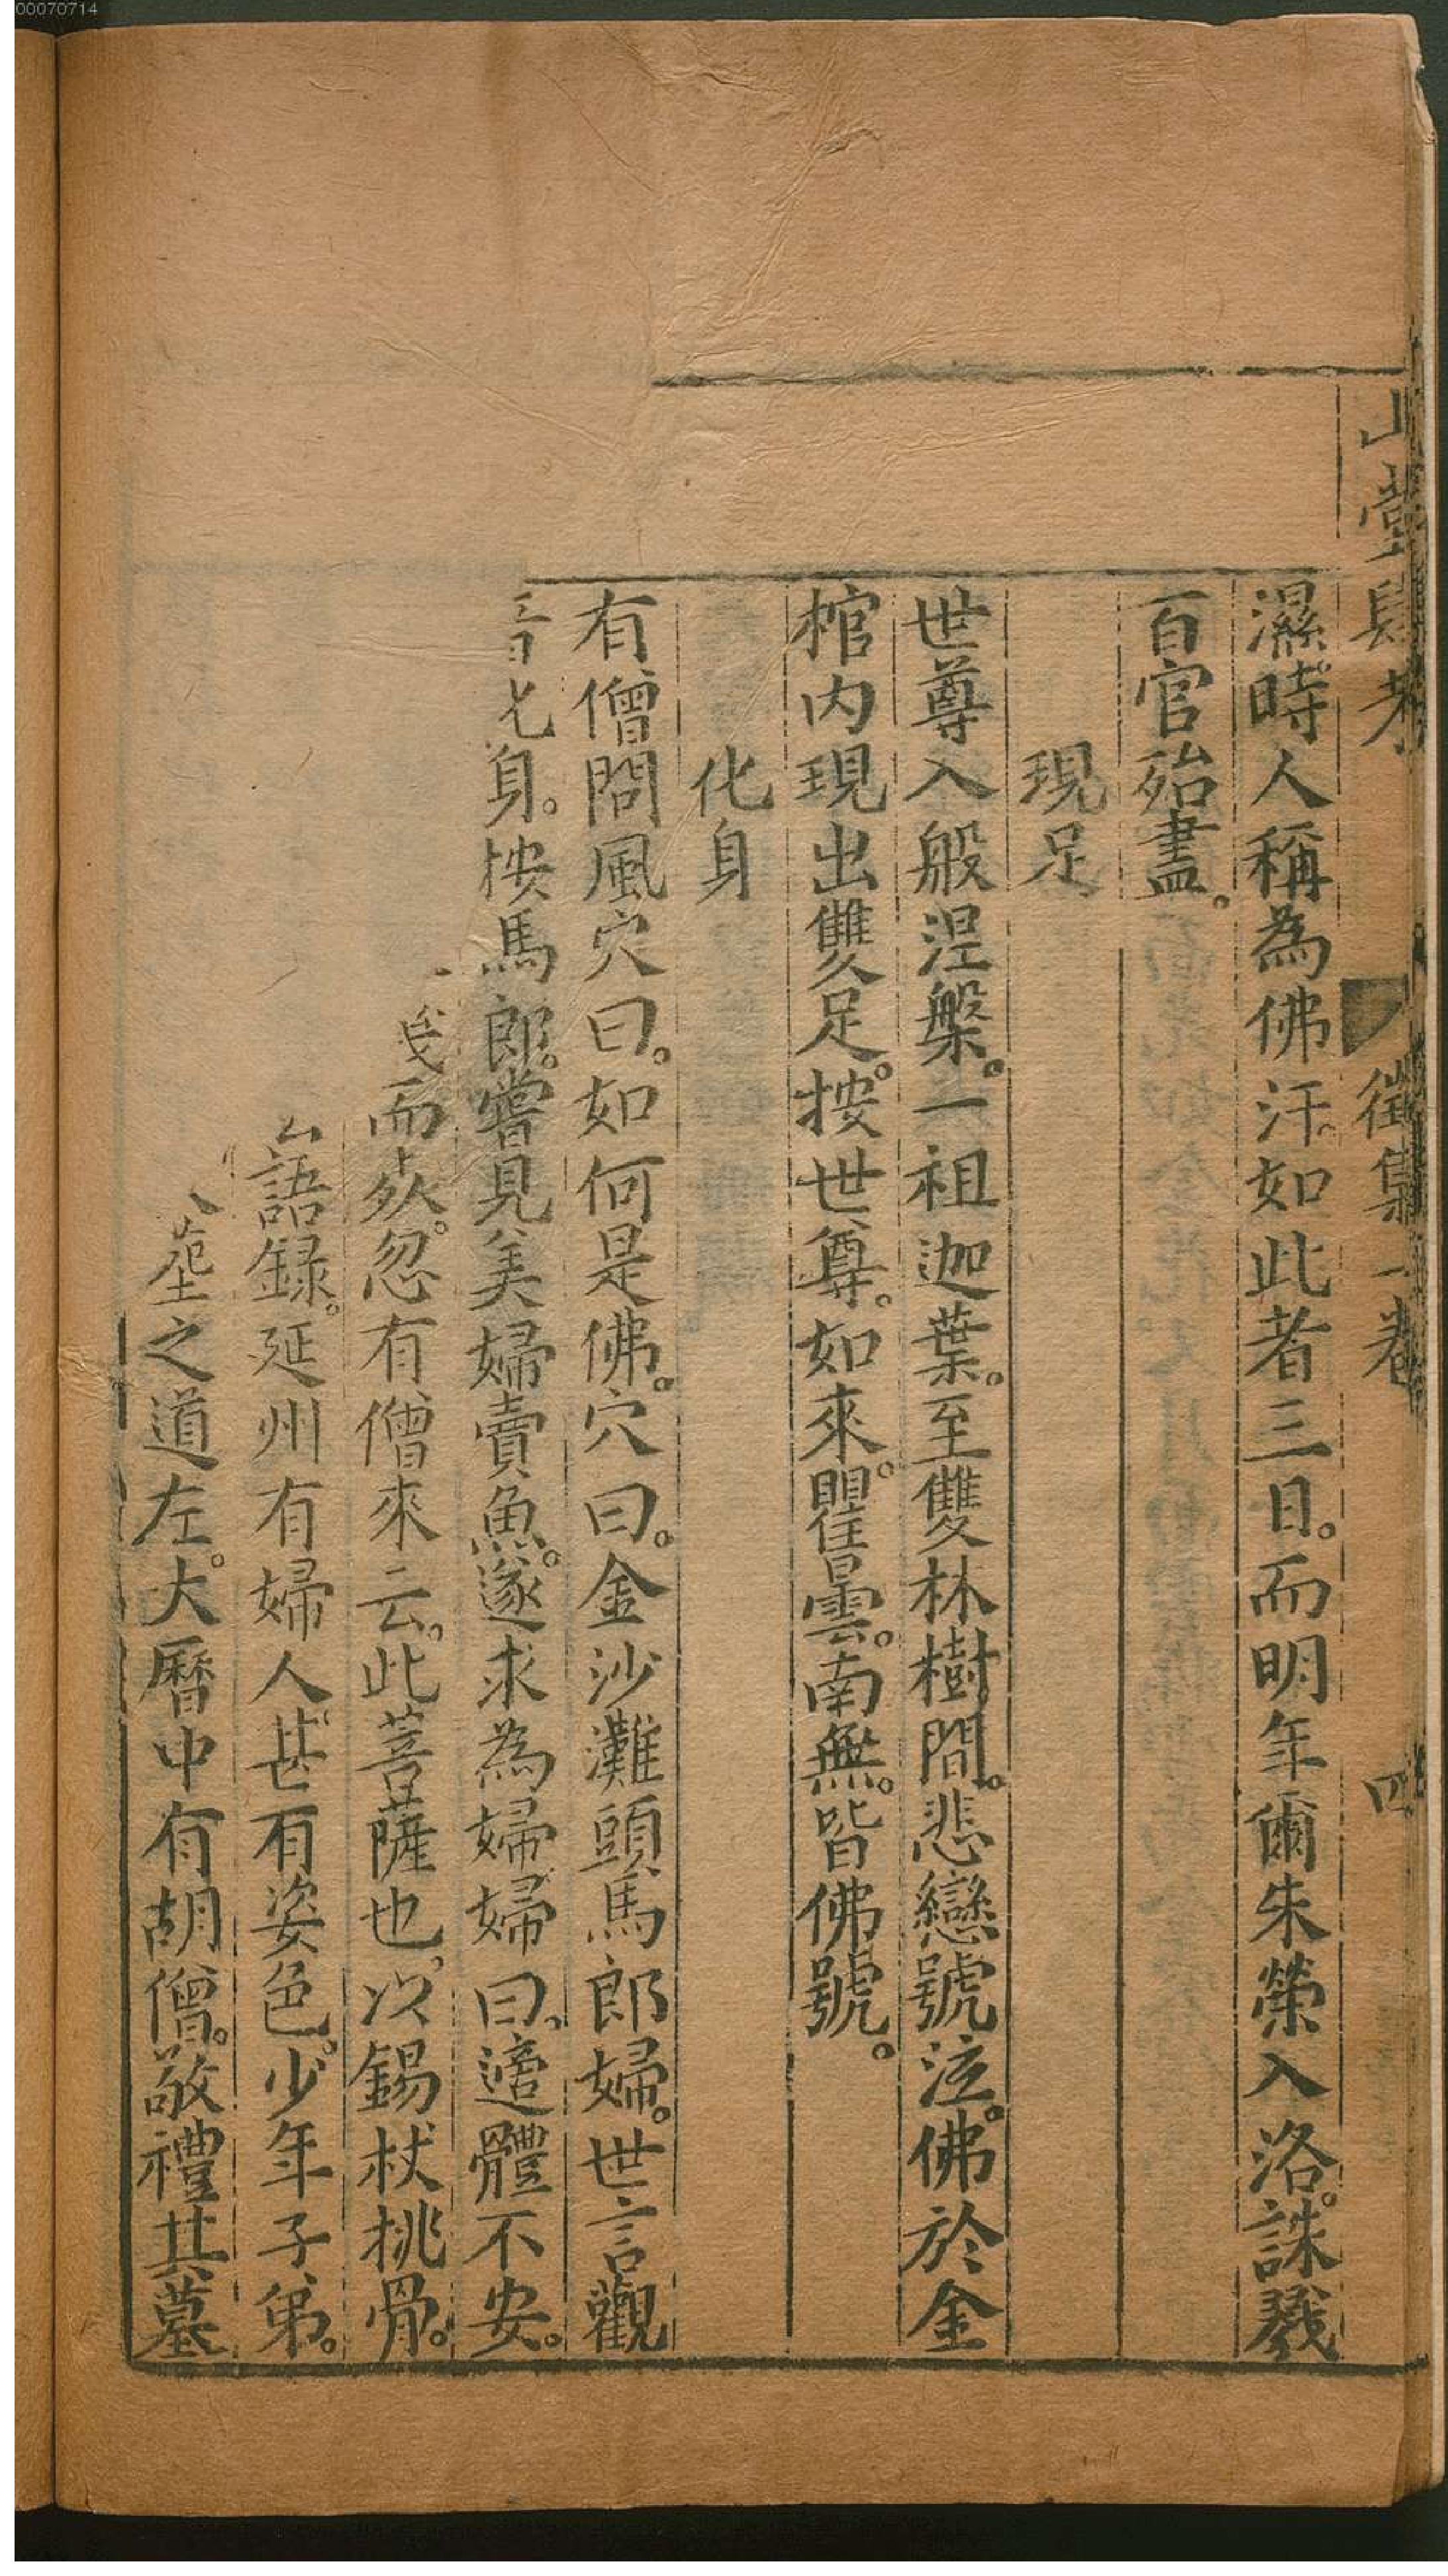 00070714
山堂肆考 徵集一卷 四
濕時人稱為佛汗如此者三日。而明年爾朱榮入洛。誅戮
百官殆盡。
現足
世尊入般涅槃。一祖迦葉。至雙林樹間。悲戀號泣。佛於金
棺内現出雙足。按世尊。如來。瞿曇。南無。皆佛號。
化身
有僧問風穴曰。如何是佛。穴曰。金沙灘頭馬郎婦。世言觀
音化身。按馬郎。嘗見美婦賣魚。遂求為婦婦曰。適體不安。
而㱙。忽有僧來云。此菩薩也。以錫杖挑骨。
語録。延州有婦人。甚有姿色。少年子弟。
之道左。大曆中有胡僧。敬禮其墓